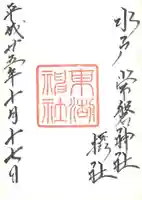 水戸 常磐神社
摂社
東湖神社
平成廿五年十月十七日